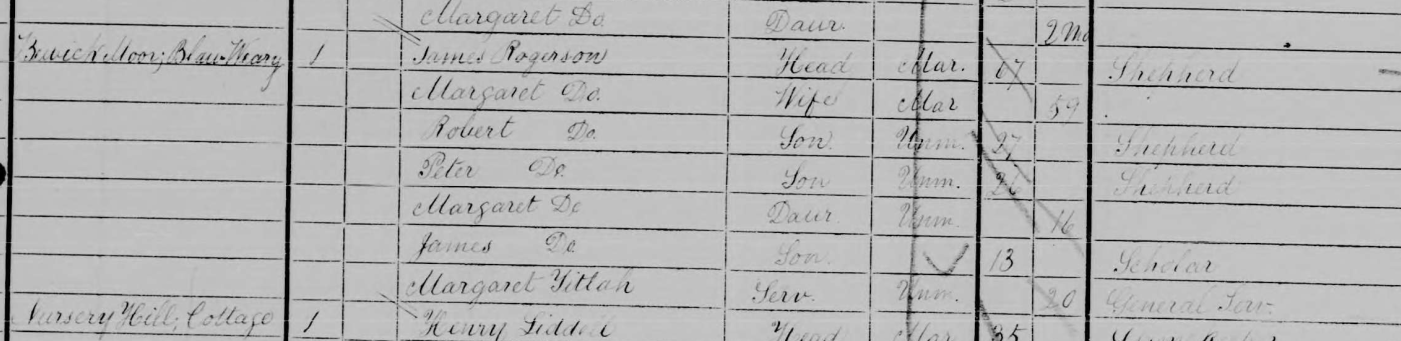 Margaret Do Daur 2 Mo
Bewick Moor; Blaw Weary 1 James Rogerson Head Mar. 67 Shepherd
Margaret Do. Wife Mar 59
Robert Do. Son Unm. 27 Shepherd
Peter Do. Son Unm. Shepherd
Margaret Do Daur. Unm. 16
James Do. Son 13 Scholar
Margaret Serv. Unm. 20 General Serv.
Nursery Hill; Cottage 1 Henry Liddell Head Mar 35